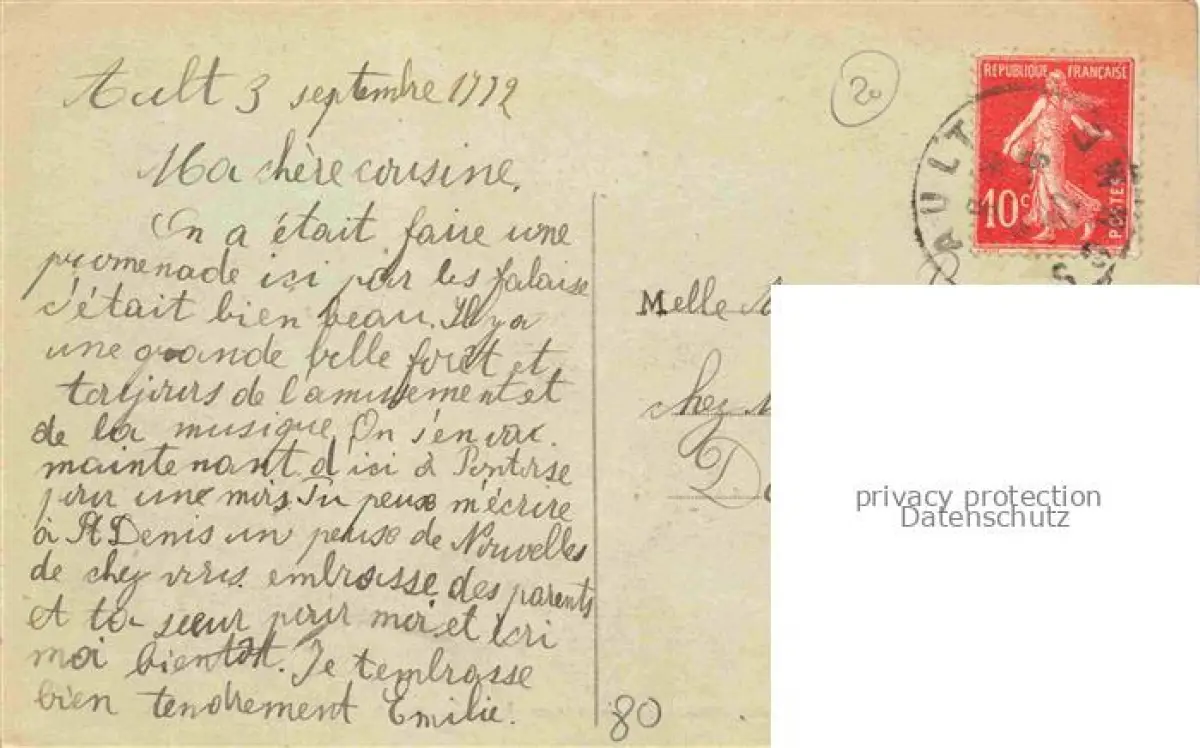 Ault 3 septembre 1912
Ma chère cousine.
On a était faire une
promenade ici par les falaise
c'était bien beau. Il y a
une grande belle forêt et
toujours de l'amusement et
de la musique. On s'en vat
maintenant d'ici à Pontoise
pour une mois. Tu peux m'écrire
à St Denis un peuse de Nouvelles
de chez vous. embrasse des parents
et ta sœur pour moi. et écri
moi bientôt. Je tembrasse
bien tendrement Emilie.
20
REPUBLIQUE FRANÇAISE
10c POSTES
AULT
Melle M
chez M
D
80
privacy protection
Datenschutz